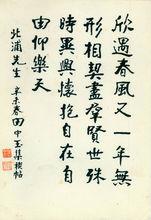 欣遇春風又一年無
形相契盡羣賢世殊
時異興懷抱自在自
由仰樂天
北浦先生 辛未春田中玉集禊帖